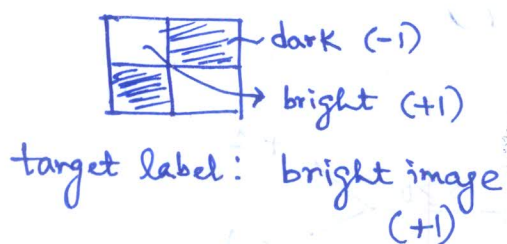 dark (-1)
bright (+1)
target label: bright image
(+1)